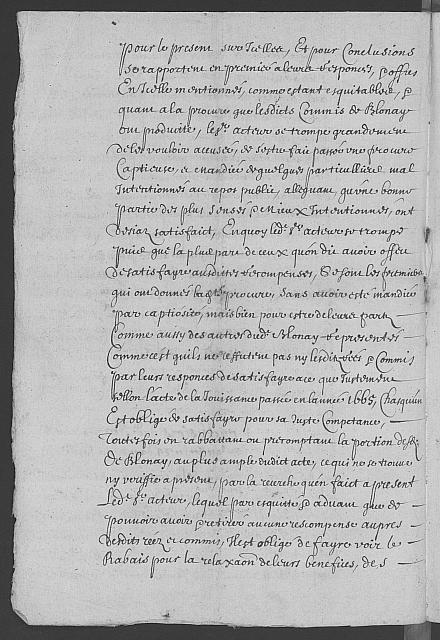 pour le present sur Icelles, Et pour Conclusions
Se rapportent en premier a leurs Responces, & offres
En Icelle mentionnés, comme estant equitables, &
quant a la procure que lesdicts Commis de Blonay
ont produitte, le Sr. acteur se trompe grandement
de les vouloir accuser, de s'estre faict passer une procure
Captieuse, et mandiée de quelques particulliers mal
Intentionnés au repos public, alleguant qu'une bonne
partie des plus Sensés & Mieux Intentionnés, ont
desia satisfaict, En quoy led. Sr. acteur se trompe
puis que la plus part de ceux qu'on dit avoir offert
de satisfayre ausdites recompenses, Se sont les premiers
qui ont donnés procure, Sans avoir esté mandiée
par captiosité, mais bien pour estre de leur part
Comme aussy des autres dud. Blonay Representés
Comme cest qu'ils ne reffutent pas ny lesdits & Commis
par leurs responces de satisfayre ace que Iustement
sellon l'acte de la Iouissance passée en l'année 1665, Chasquun
Est obligé de satisfayre pour sa Iuste Competance,
Toutesfois en rabbattant ou precomptant la portion de
De Blonay, au plus ample dudict acte, ce qui ne se trouve
ny veriffié a present, par la recerche qu'en faict a present
Led. Sr. acteur, lequel par esquitté & advant que de
pouvoir avoir & retirer aucune rescompense aupres
desdits et commis, Il est obligé de fayre voir le
Rabais pour la relaxaon de leurs benefices, des